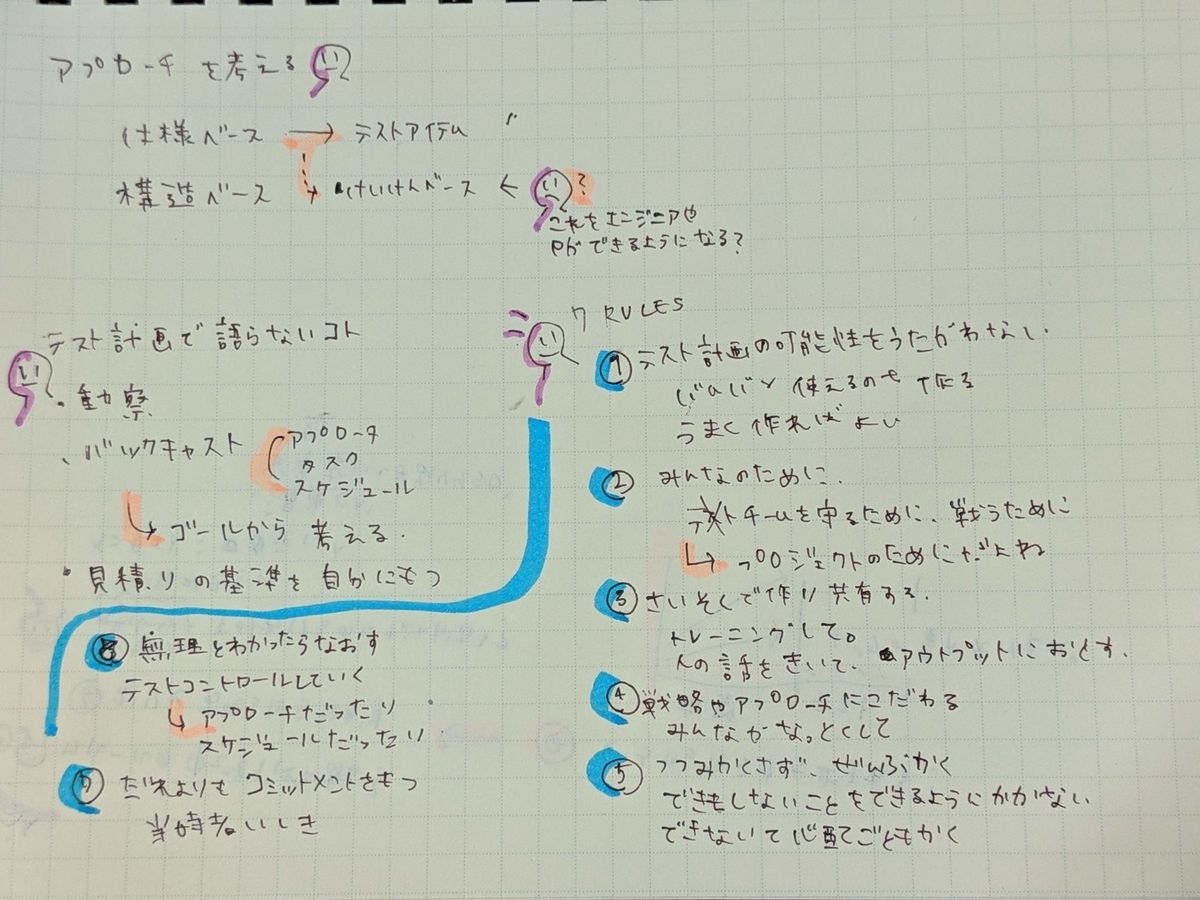 アプローチを考える
仕様ベース → テストアイテム
構造ベース けいけんベース ← ?
これをエンジニアや
Pができるようになる?
テスト計画で語らないコト
・動察
、バックキャスト
アプローチ
タスク
スケジュール
ゴールから考える.
・見積りの基準を自分にもつ
7 RULES
① テスト計画の可能性をうたがわない.
バリバリ使えるのを作る
うまく作ればよい
② みんなのために.
チームを守るために、戦うために
プロジェクトのためにだよね
③ さいそくで作り共有する.
トレーニングして。
人の話をきいて、アウトプットにおとす.
④ 戦略やアプローチにこだわる
みんながなっとくして
⑤ つつみかくさず、ぜんぶかく
できもしないことをできるようにかかない
できないて心配ごともかく
⑥ 無理とわかったらなおす
テストコントロールしていく
アプローチだったり
スケジュールだったり
⑦ だれよりもコミットメントをもつ
当時者いしき